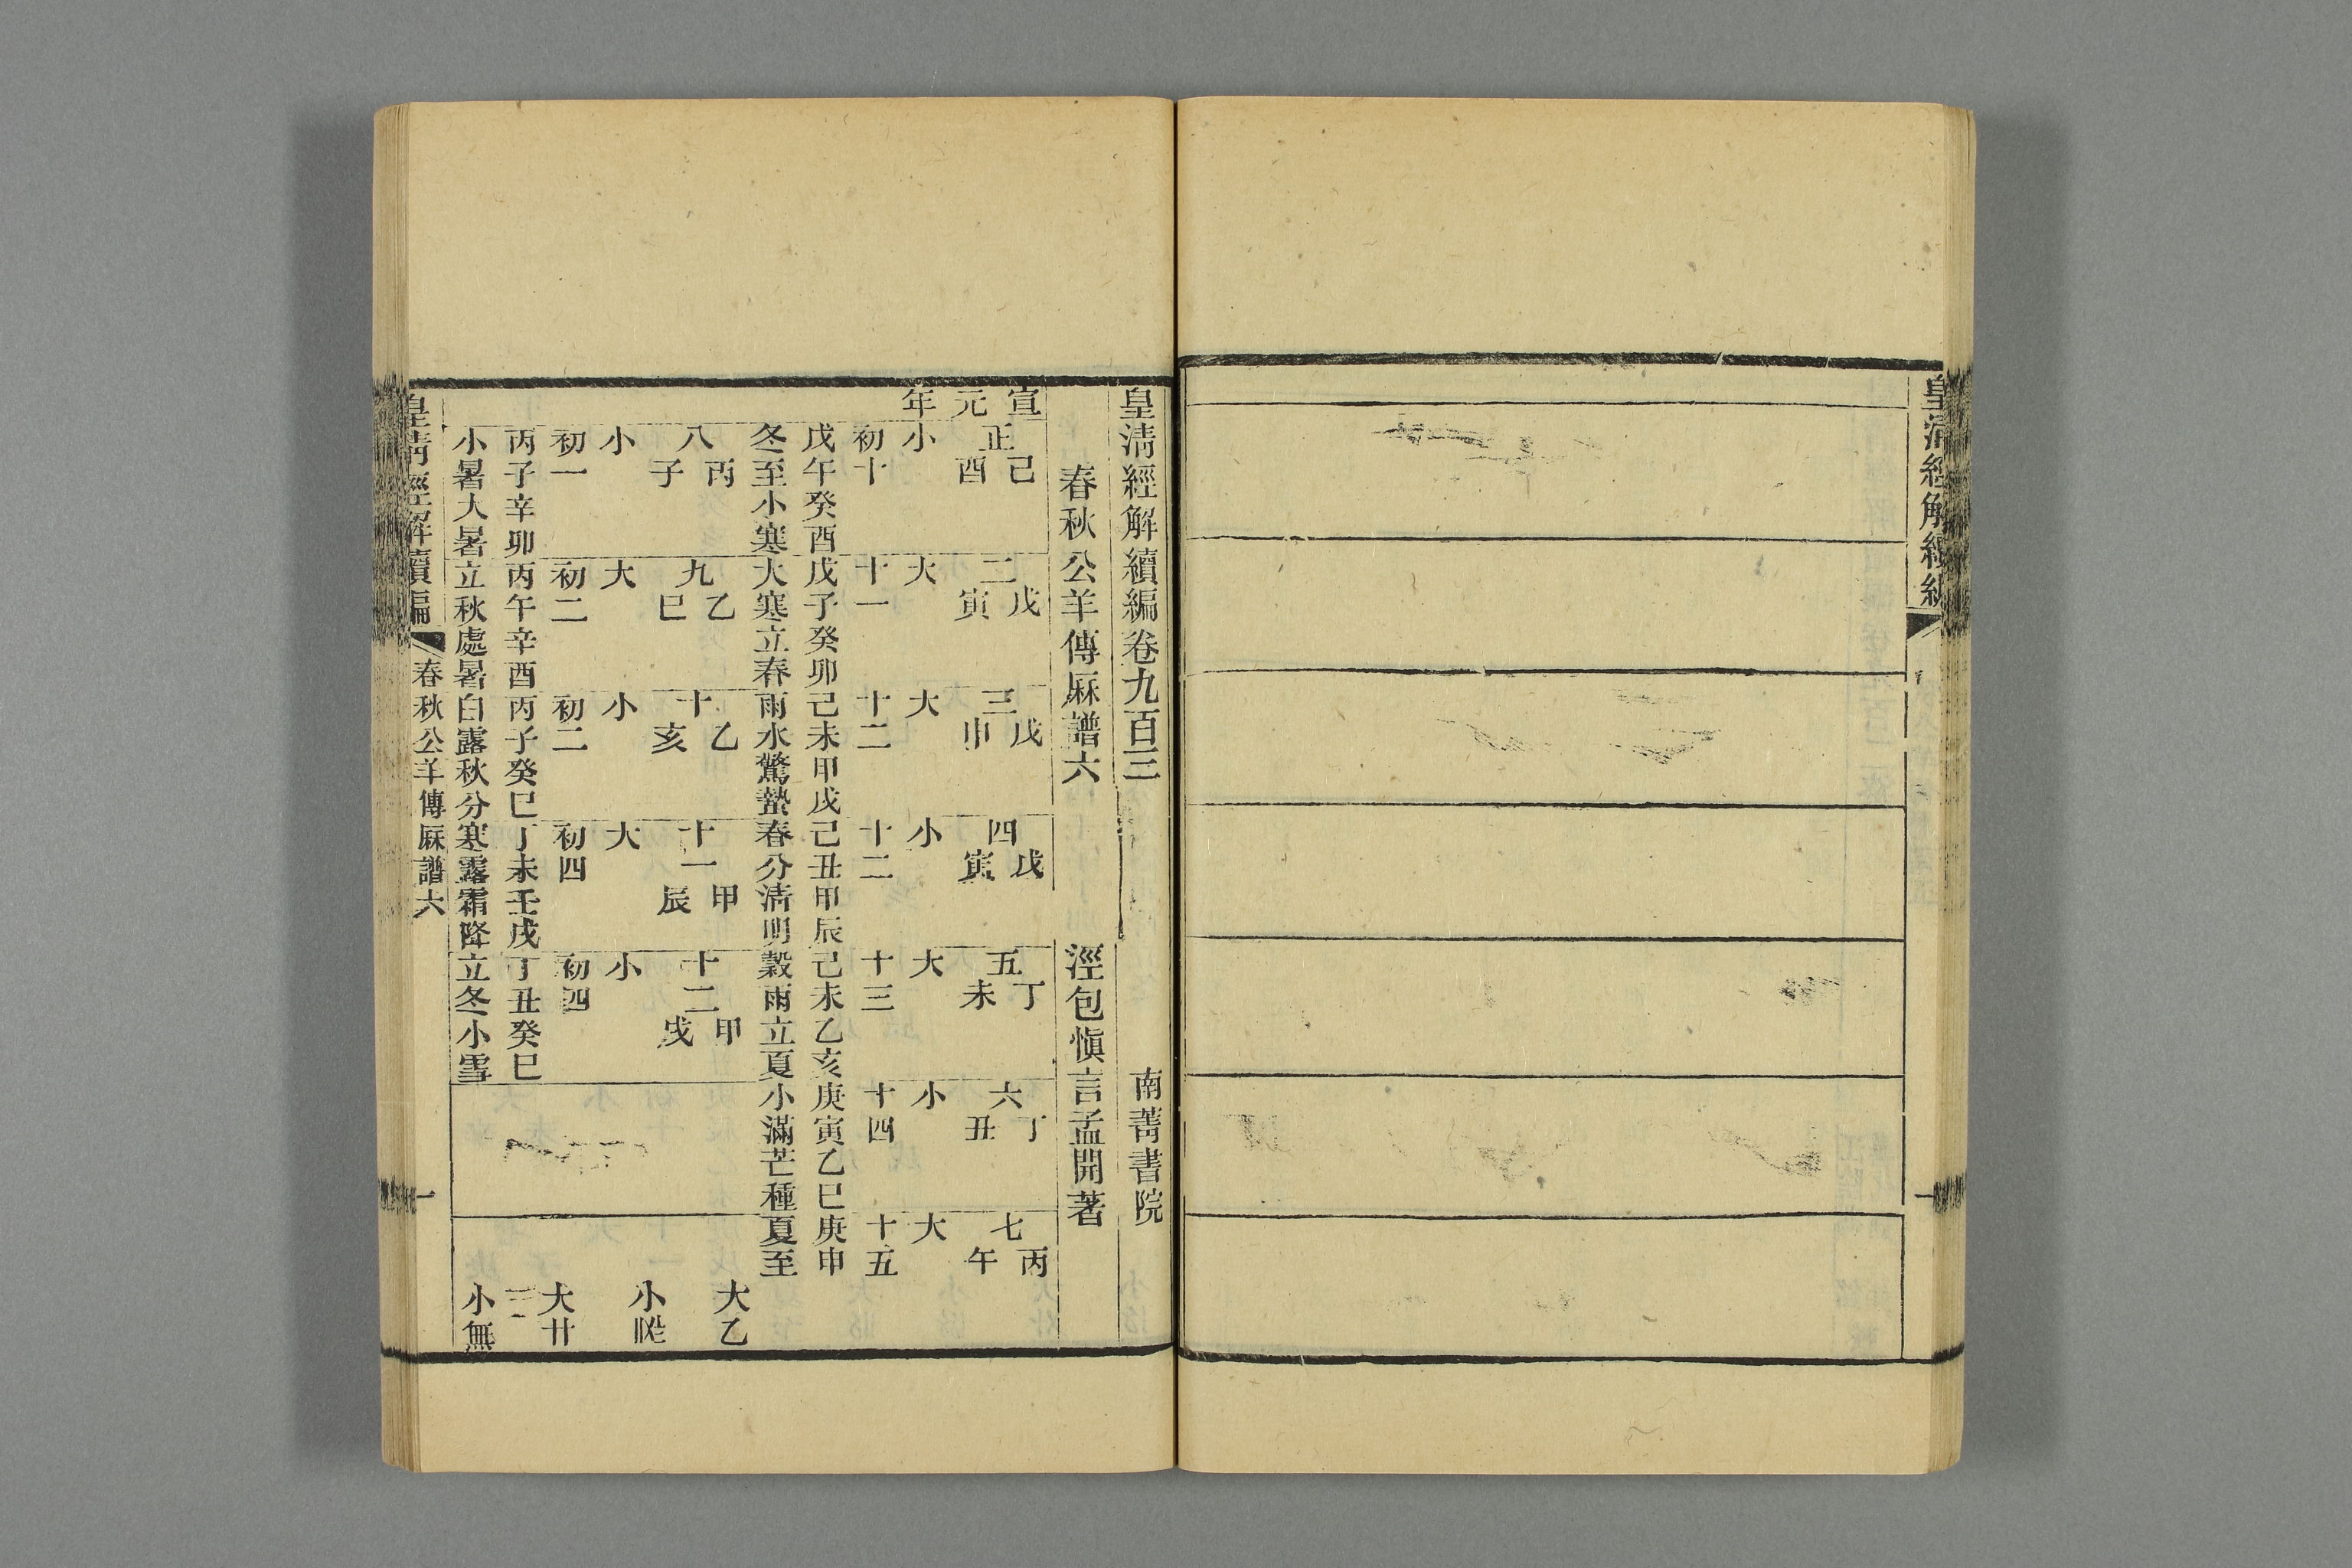 皇清經解續編
皇清經解續編卷九百三 南菁書院
春秋公羊傳厤譜六 涇包慎言孟開著
宣元年
正 己酉 二 戊寅 三 戊申 四 戊寅 五 丁未 六 丁丑 七 丙午
小 大 大 小 大 小 大
初十 十一 十二 十二 十三 十四 十五
戊午癸酉 戊子癸卯 己未甲戌 己丑甲辰 己未乙亥 庚寅乙巳 庚申
冬至小寒 大寒立春 雨水驚蟄 春分清明 穀雨立夏 小滿芒種 夏至
八 丙子 九 乙巳 十 乙亥 十一 甲辰 十二 甲戌 大乙
小 大 小 大 小 小
初一 初二 初二 初四 初四 大廿
丙子辛卯 丙午辛酉 丙子癸巳 丁未壬戌 丁丑癸巳
小暑大暑 立秋處暑 白露秋分 寒露霜降 立冬小雪 小無
皇清經解續編 春秋公羊傳厤譜六 一